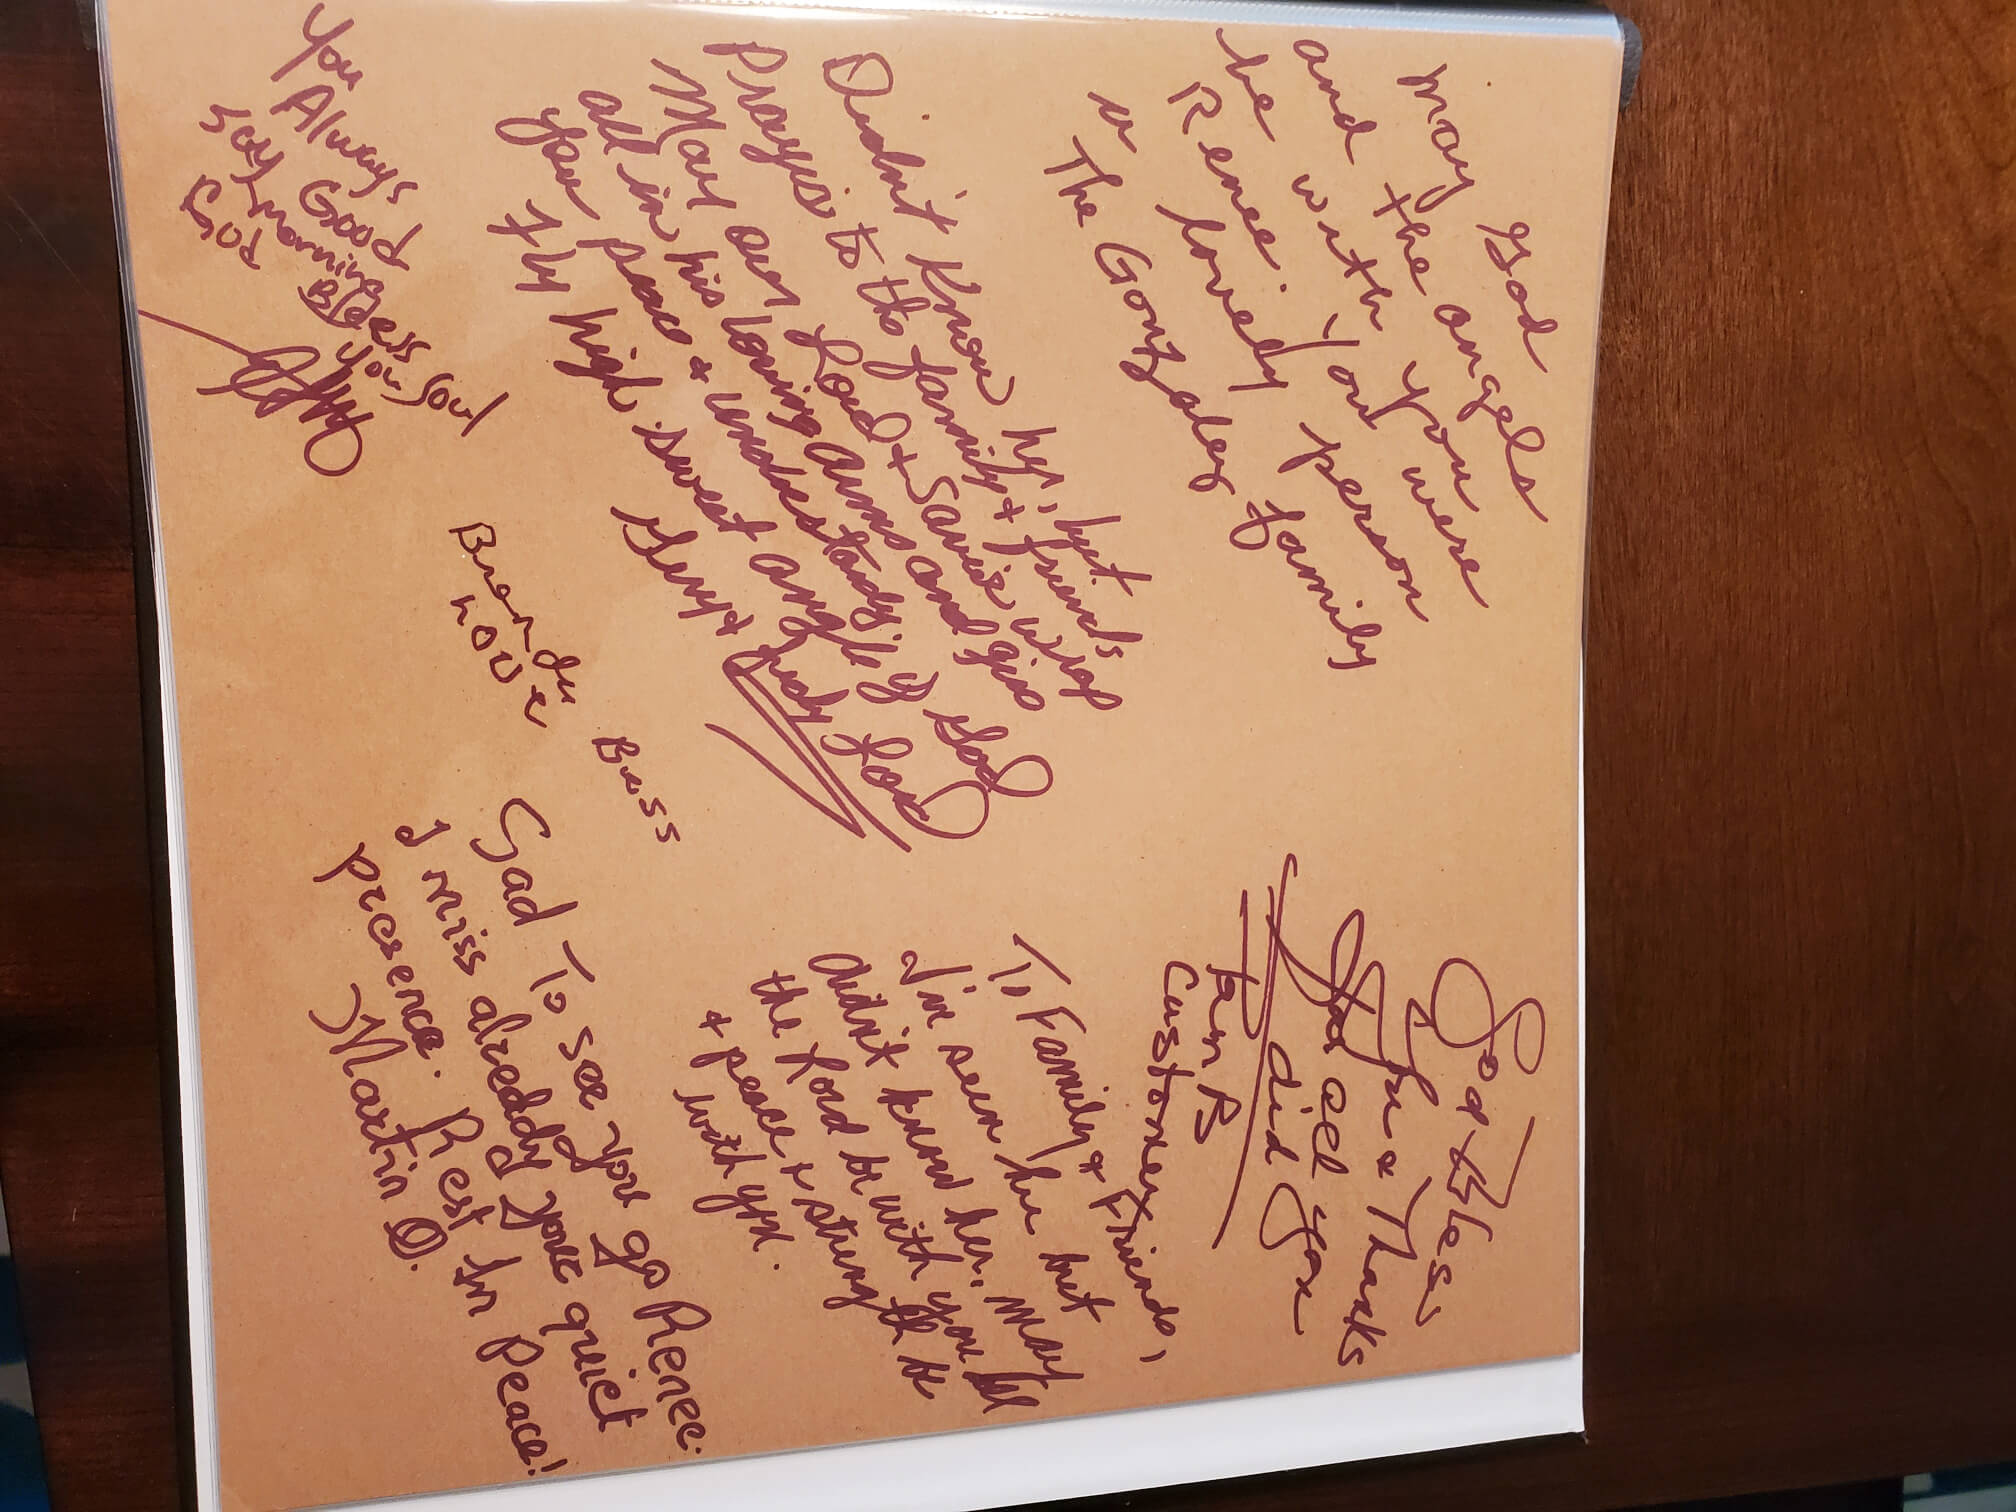 May God
and the angels
be with you
Renee. You were
a lovely person
The Gonzalez family
God Bless
Thanks
for all you
did
Pam B
Customer
Didn't know her, but
prayers to the family & friends
May our Lord & Savior wrap
all in his loving arms and give
you peace & understanding of God
Fly high sweet angel
Judy Lord
To Family & Friends,
I've seen her but
didn't know her. May
the Lord be with you all
& peace & strength be
with you.
You Always
Say Good
morning
God Bless
You Soul
Bress
Sad To see you go Renee.
I miss already your quiet
presence. Rest In Peace!
Martin D.